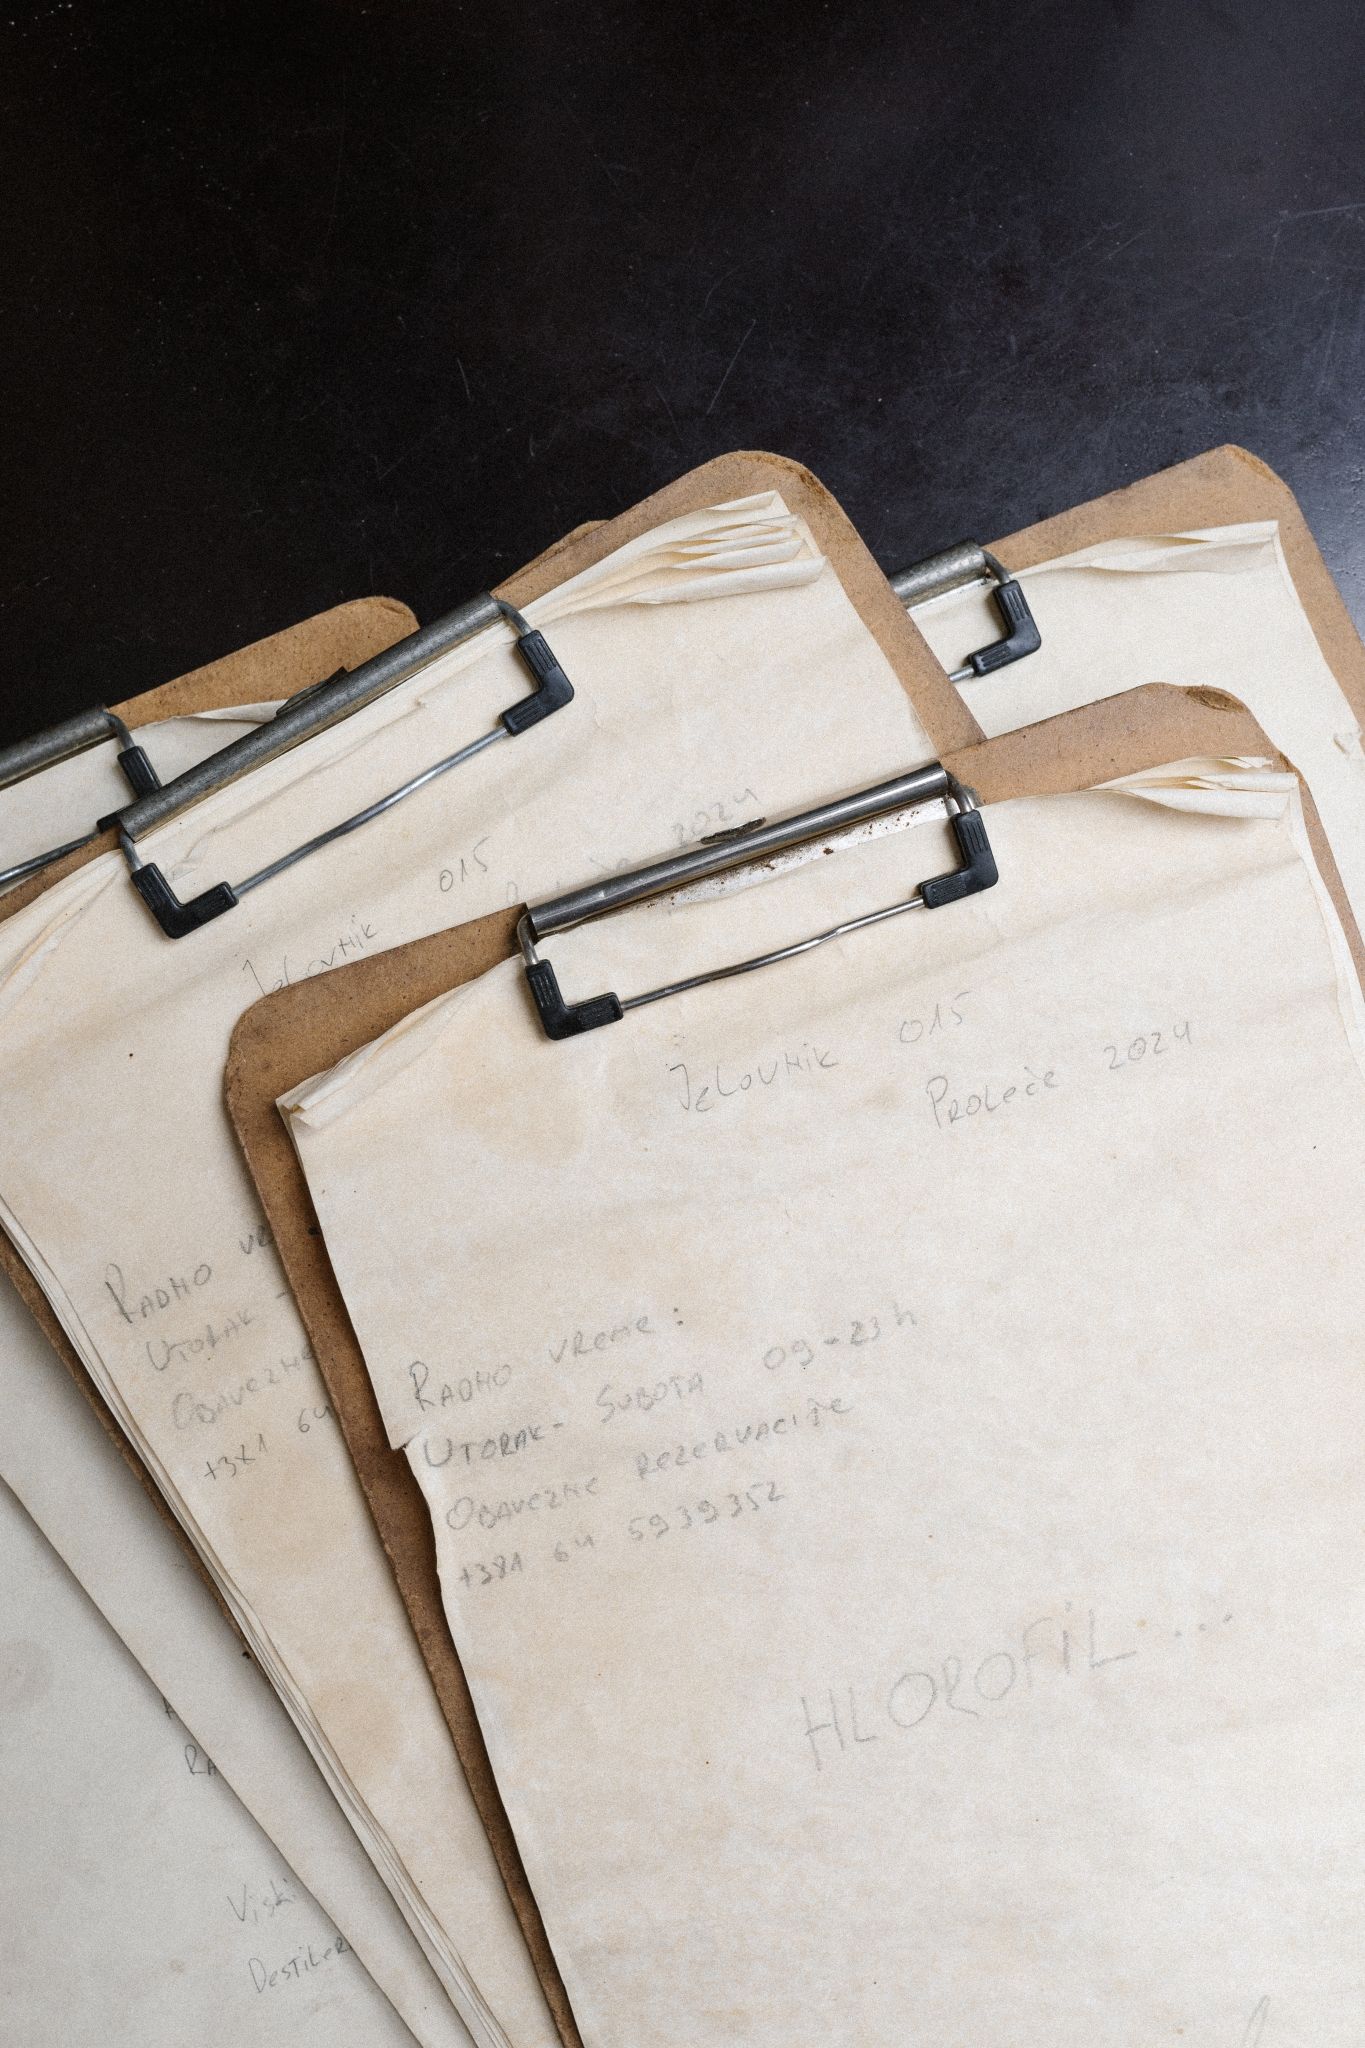 Jelovnik 015
Proleće 2024
Radno vreme:
Utorak - Subota 09-23h
Obavezne rezervacije
+381 64 5939352
HLOROFiL...
Jelovnik 015
2024
Radno
Utorak -
Obavezne
+381 64
Viski